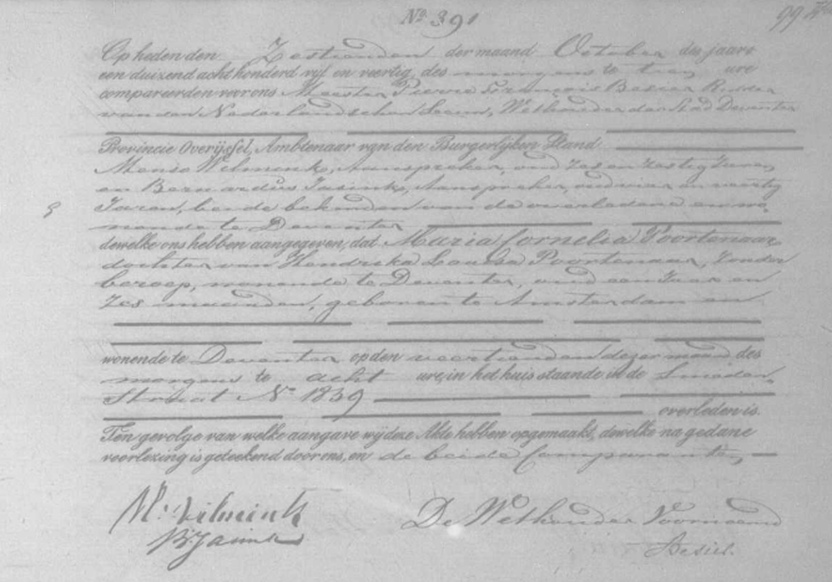 No. 391
99
Op heden den Zestienden der maand October des jaars
een duizend acht honderd vijf en veertig, des morgens te tien ure
compareerden voor ons Meester Pierre François Besier Ridder
van den Nederlandschen Leeuw, Wethouder der Stad Deventer
Provincie Overijssel, Ambtenaar van den Burgerlijken Stand
Menso Wilmink, Aanspreker, oud Zes en Zestig Jaren,
en Bernardus Jasink, Aanspreker, oud vier en veertig
Jaren, beide bekenden van de overledene en wo-
nende te Deventer
dewelke ons hebben aangegeven, dat Maria Cornelia Poortenaar
dochter van Hendrika Poortenaar, Zonder
beroep, wonende te Deventer, oud een Jaar en
Zes maanden, geboren te Amsterdam en
wonende te Deventer op den veertienden dezer maand des
morgens te acht ure, in het huis staande in de Smeden
Straat No. 1839
overleden is.
Ten gevolge van welke aangave wij deze Akte hebben opgemaakt, dewelke na gedane
voorlezing is geteekend door ons, en de beide Comparanten,
M: Wilmink
B: Jasink
De Wethouder Voornoemd
Besier